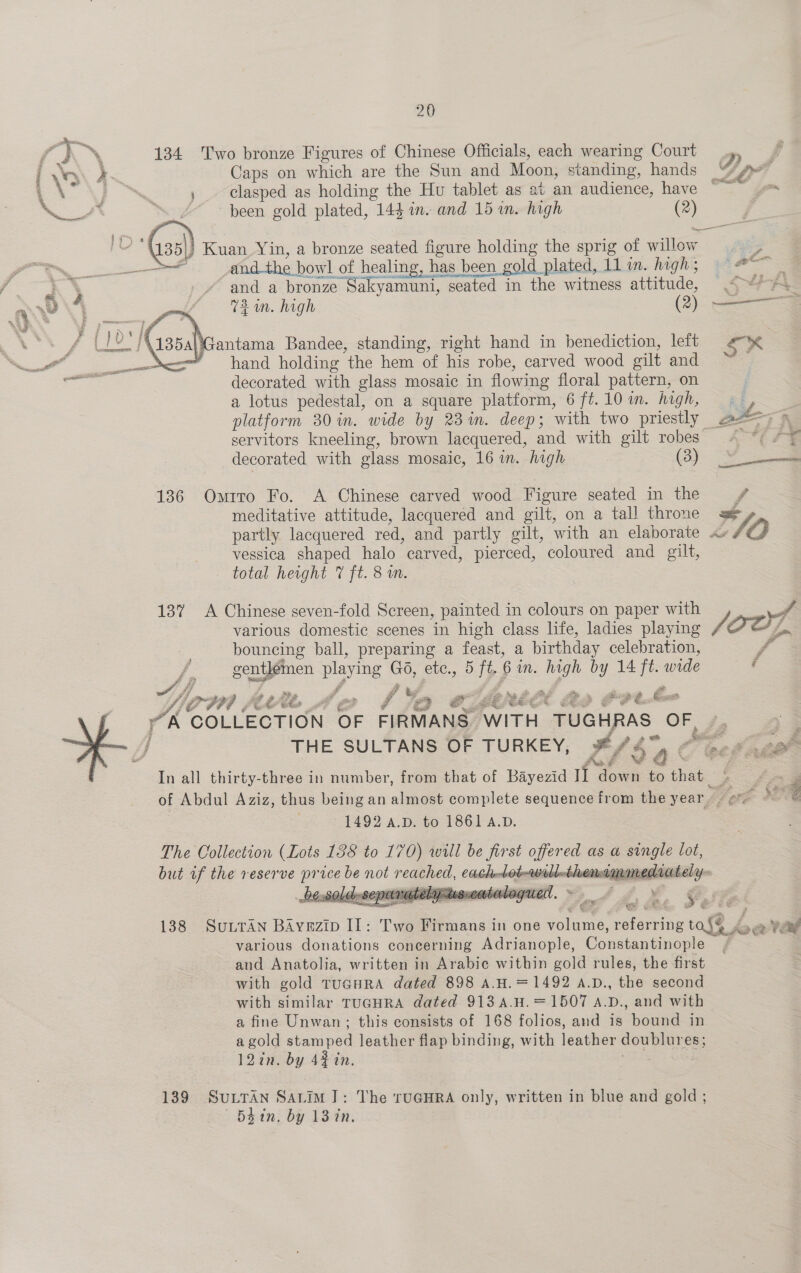 20
134 Two bronze Figures of Chinese Officials, each wearing Court
Caps on which are the Sun and Moon, standing, hands
clasped as holding the Hu tablet as at an audience, have
been gold plated, 14½ in. and 15 in. high (2)
10
135 Kuan Yin, a bronze seated figure holding the sprig of willow
and the bowl of healing, has been gold plated, 11 in. high;
and a bronze Sakyamuni, seated in the witness attitude,
7¾ in. high (2)
10
135a Gantama Bandee, standing, right hand in benediction, left
hand holding the hem of his robe, carved wood gilt and
decorated with glass mosaic in flowing floral pattern, on
a lotus pedestal, on a square platform, 6 ft. 10 in. high,
platform 30 in. wide by 23 in. deep; with two priestly
servitors kneeling, brown lacquered, and with gilt robes
decorated with glass mosaic, 16 in. high (3)
136 Omito Fo. A Chinese carved wood Figure seated in the
meditative attitude, lacquered and gilt, on a tall throne
partly lacquered red, and partly gilt, with an elaborate
vessica shaped halo carved, pierced, coloured and gilt,
total height 7 ft. 8 in.
137 A Chinese seven-fold Screen, painted in colours on paper with
various domestic scenes in high class life, ladies playing
bouncing ball, preparing a feast, a birthday celebration,
gentlemen playing Go, etc., 5 ft. 6 in. high by 14 ft. wide
A COLLECTION OF FIRMANS WITH TUGHRAS OF
THE SULTANS OF TURKEY,
In all thirty-three in number, from that of Bayezid II down to that
of Abdul Aziz, thus being an almost complete sequence from the year
1492 A.D. to 1861 A.D.
The Collection (Lots 138 to 170) will be first offered as a single lot,
but if the reserve price be not reached, each lot will then immediately
be sold separately as catalogued.
138 Sultān Bāyezīd II: Two Firmans in one volume, referring to
various donations concerning Adrianople, Constantinople
and Anatolia, written in Arabic within gold rules, the first
with gold TUGHRA dated 898 A.H. = 1492 A.D., the second
with similar TUGHRA dated 913 A.H. = 1507 A.D., and with
a fine Unwan; this consists of 168 folios, and is bound in
a gold stamped leather flap binding, with leather doublures;
12 in. by 4¾ in.
139 Sultān Salīm I: The TUGHRA only, written in blue and gold;
5½ in. by 13 in.